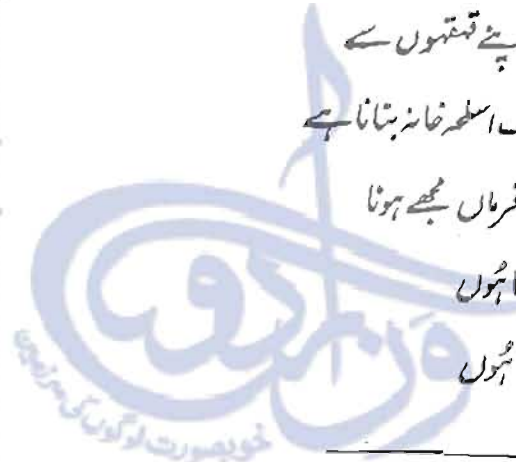 پنے قہقہوں سے
اسلحہ خانہ بنانا ہے
فرماں مجھے ہونا
ہُوں
ہُوں
ون اردو
خوبصورت لوگوں کی سرزمین